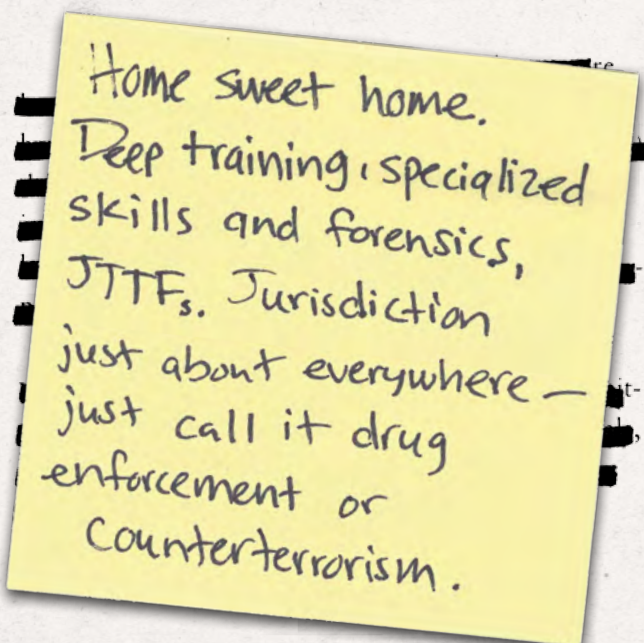 Home sweet home.
Deep training, specialized
skills and forensics,
JTTFs. Jurisdiction
just about everywhere —
just call it drug
enforcement or
counterterrorism.